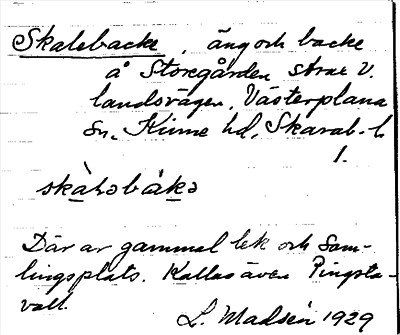 Skalebacke, äng och backe
å Storegården strax V.
landsvägen, Västerplana
sn, Kinne hd, Skarab. l.
1.
skàləbákə
Där är gammal lek och sam-
lingsplats. Kallas även Pingsta-
vall.
L. Madsén 1929